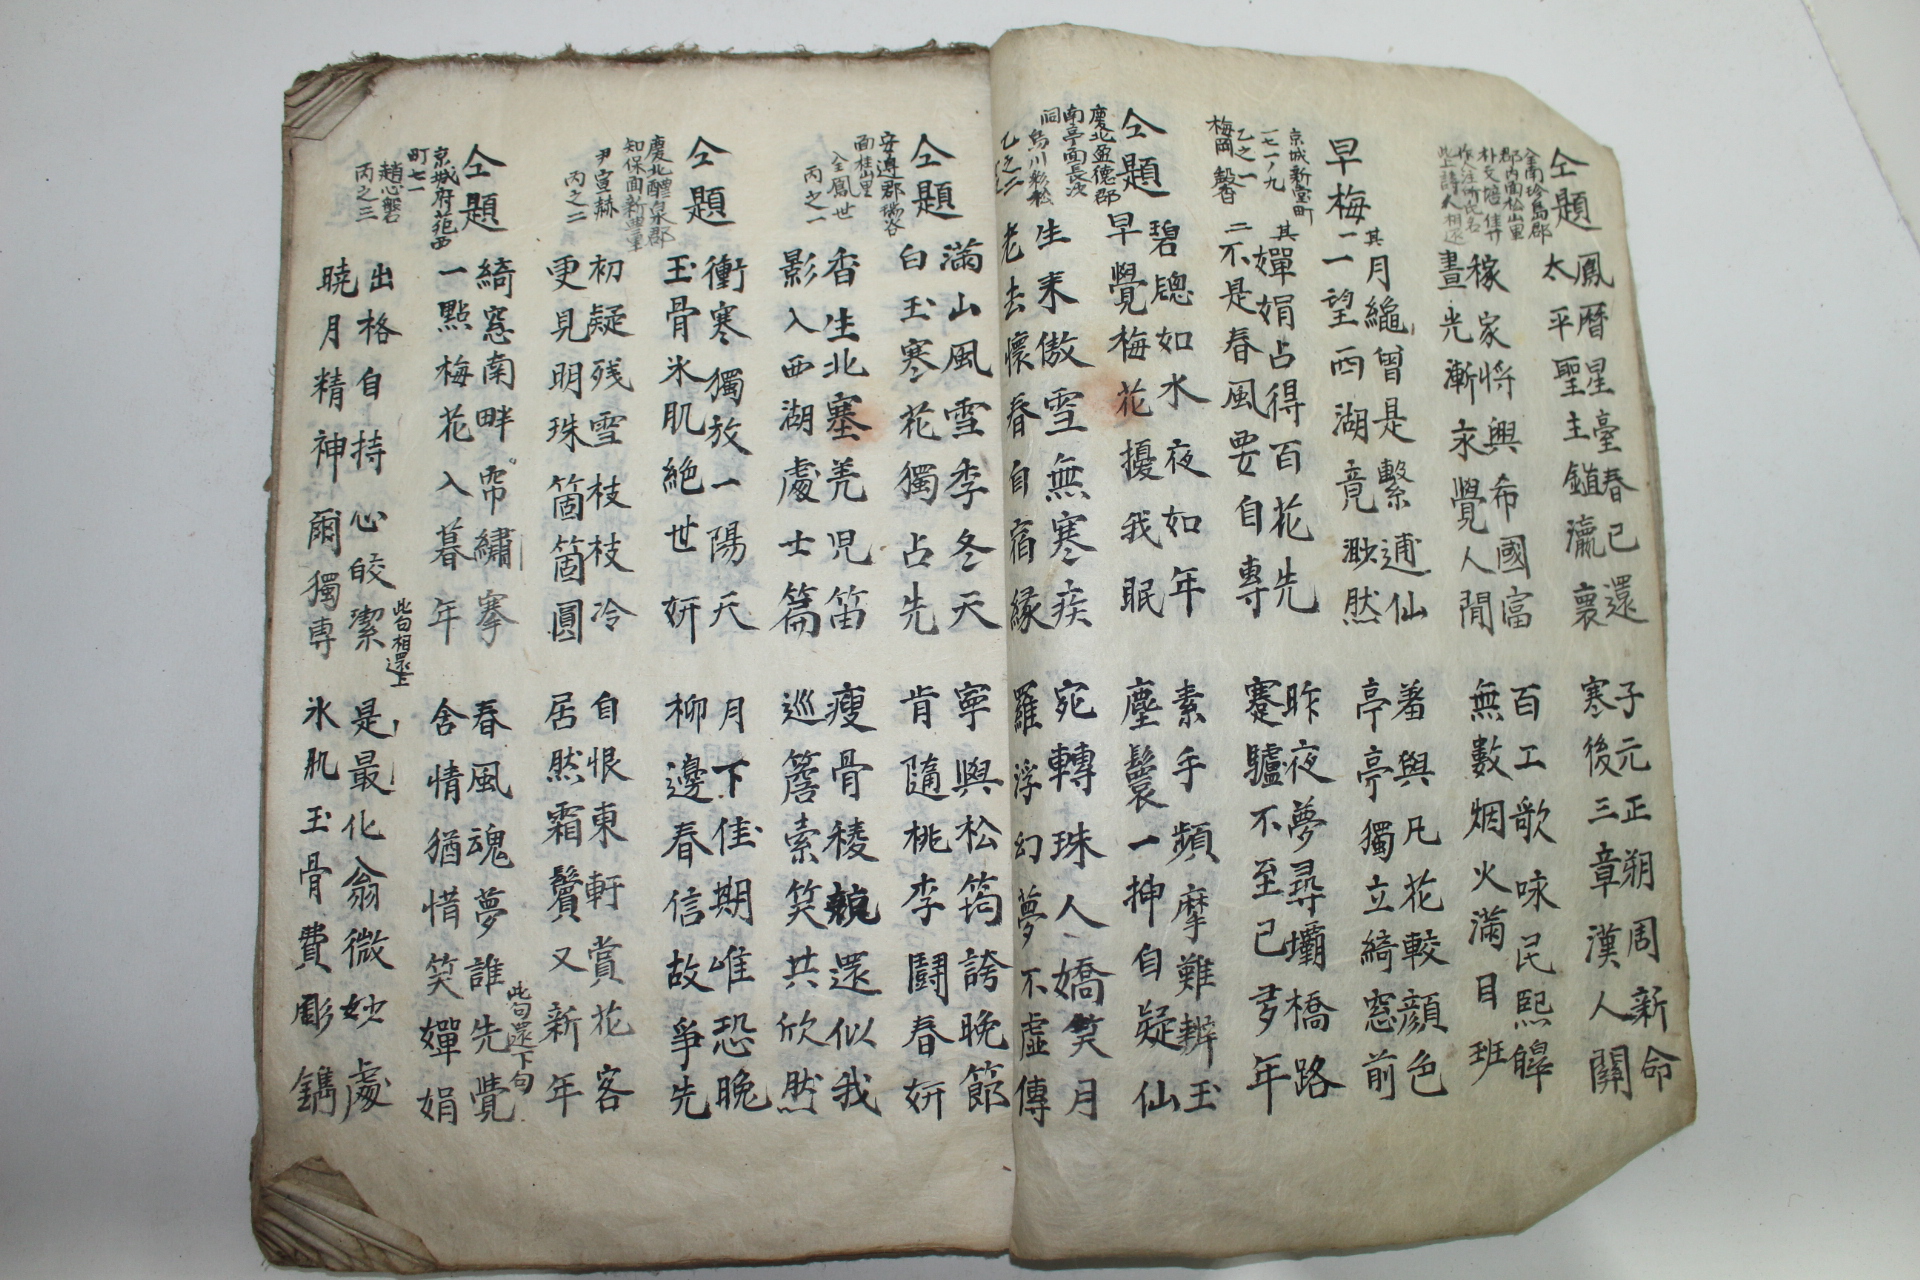 仝題
全南珍島郡
郡內面松山里
朴文
此上詩人相還
鳳曆星臺春已還
子元正朔周新命
太平聖主鎭瀛寰
寒後三章漢人關
稼家將興希國富
百工歌咏民熙皥
晝光漸永覺人閒
無數烟火滿目班
早梅
其一
月䋲曾是繫逋仙
羞與凡花較顔色
一望西湖竟渺然
亭亭獨立綺窓前
京城新堂町
一七一ノ九
乙之一
梅岡
其二
嬋娟占得百花先
昨夜夢尋壩橋路
不是春風要自專
蹇驢不至已多年
仝題
慶北盈德郡
南亭面長沙
洞
乙之二
碧牕如水夜如年
素手頻摩難辨玉
早覺梅花擾我眠
塵鬟一抻自疑仙
生來傲雪無寒疾
宛轉珠人嬌笑月
老去懷春自宿緣
羅浮幻夢不虛傳
仝題
安邊郡瑞谷
面桂山里
全鳳世
丙之一
滿山風雪季冬天
寧與松筠誇晩節
白玉寒花獨占先
肯隨桃李鬪春姸
香生北塞羌児笛
瘦骨稜兢還似我
影入西湖處士篇
巡簷索笑共欣然
仝題
慶北醴泉郡
知保面新豊里
尹宣赫
丙之二
衝寒獨放一陽天
月下佳期唯恐晩
玉骨氷肌絕世姸
柳邊春信故爭先
初疑残雪枝枝冷
自恨東軒賞花客
更見明珠箇箇圓
居然霜鬢又新年
仝題
京城府苑西
町七一
趙心磐
丙之三
綺窓南畔帶繡搴
春風魂夢誰先覺
此句還下句
一點梅花入暮年
含情猶惜笑嬋娟
出格自持心皎潔
此句相還上
是最化翁微妙處
曉月精神爾獨專
氷肌玉骨費彫鐫